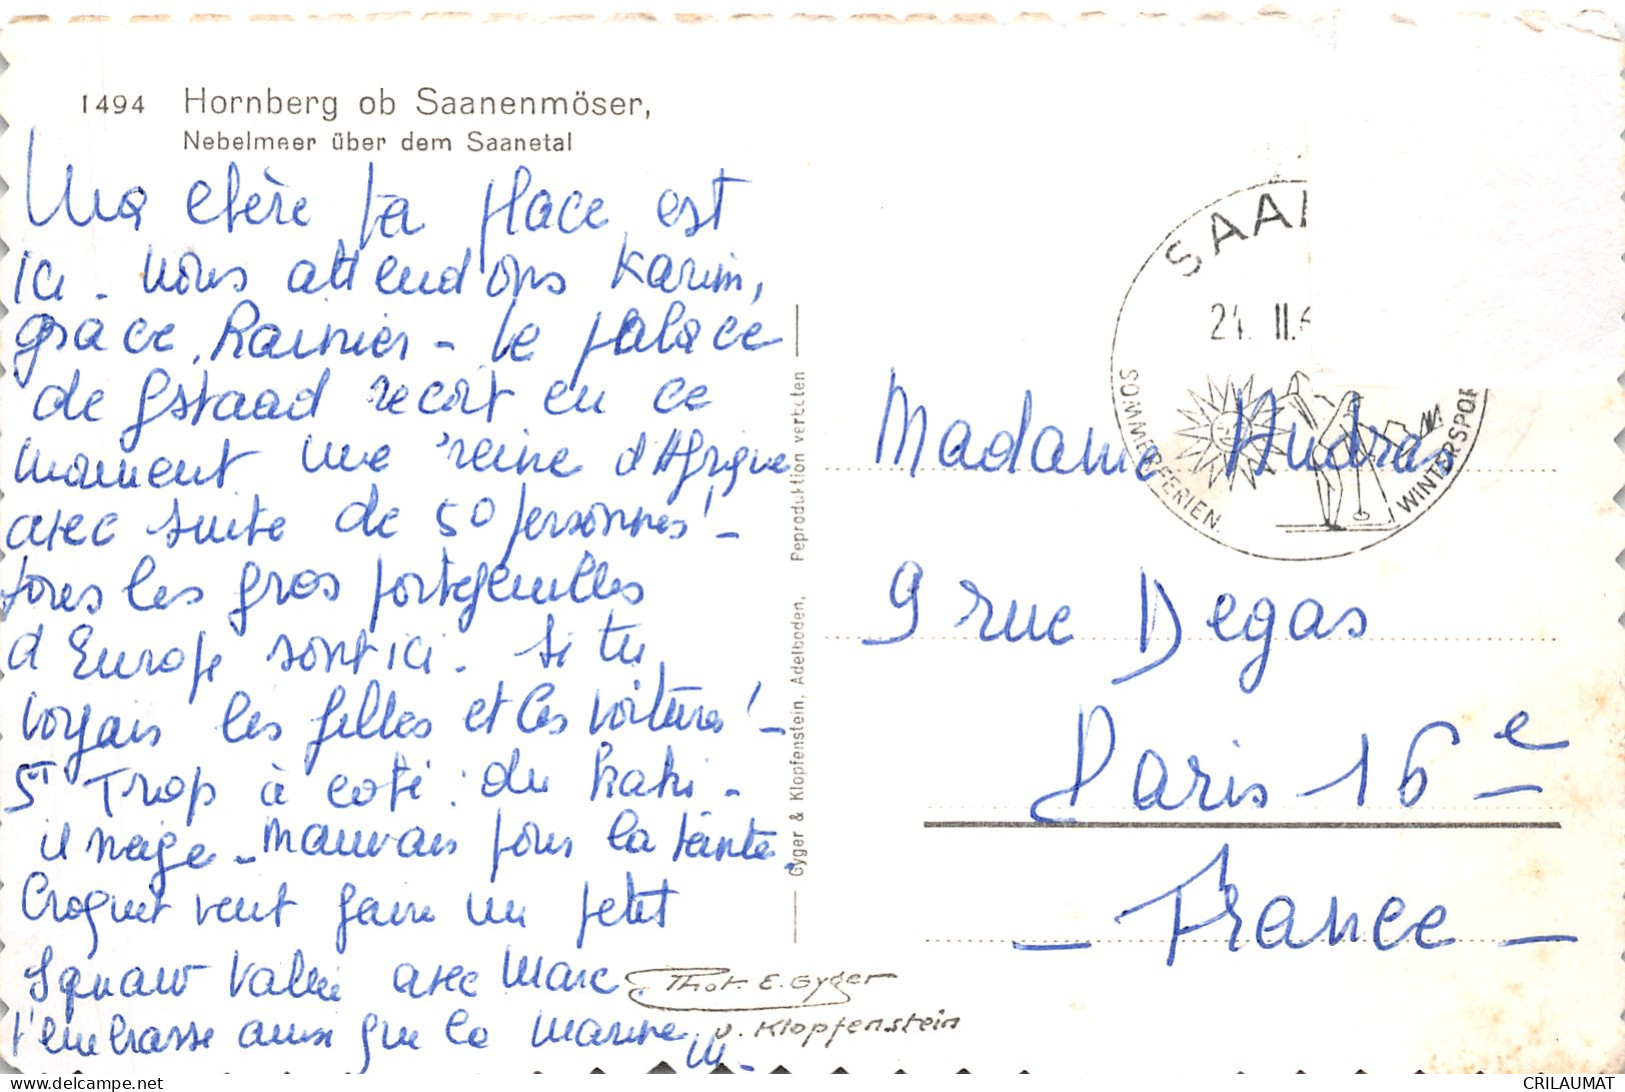 1494 Hornberg ob Saanenmöser,
Nebelmeer über dem Saanetal
Ma chère ta place est
ici. Nous attendons Karim,
Grace, Rainier - le palace
de Gstaad reçoit en ce
moment une reine d'Afrique
avec suite de 50 personnes! -
tous les gros portefeuilles
d'Europe sont ici. Si tu
voyais les filles et les voitures! -
St Trop à coté : du kaki -
il neige - mauvais pour la teinte.
Croquet veut faire un petit
Squaw Vallée avec Marc.
t'embrasse ainsi que la marine
Phot. E. Gyger
u. Klopfenstein
Gyger & Klopfenstein, Adelboden. Reproduktion verboten
SAAN
21. II. 6
SOMMERFERIEN
WINTERSPOR
Madame
9 rue Degas
Paris 16e
- France -
CRILAUMAT